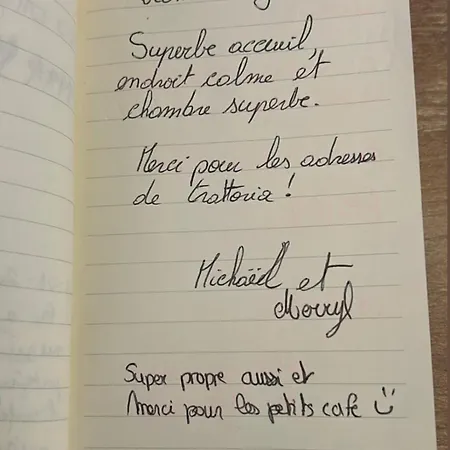 Superbe acceuil,
endroit calme et
chambre superbe.
Merci pour les adresses
de trattoria !
Michaël et
Merryl
Super propre aussi et
Merci pour les petits café